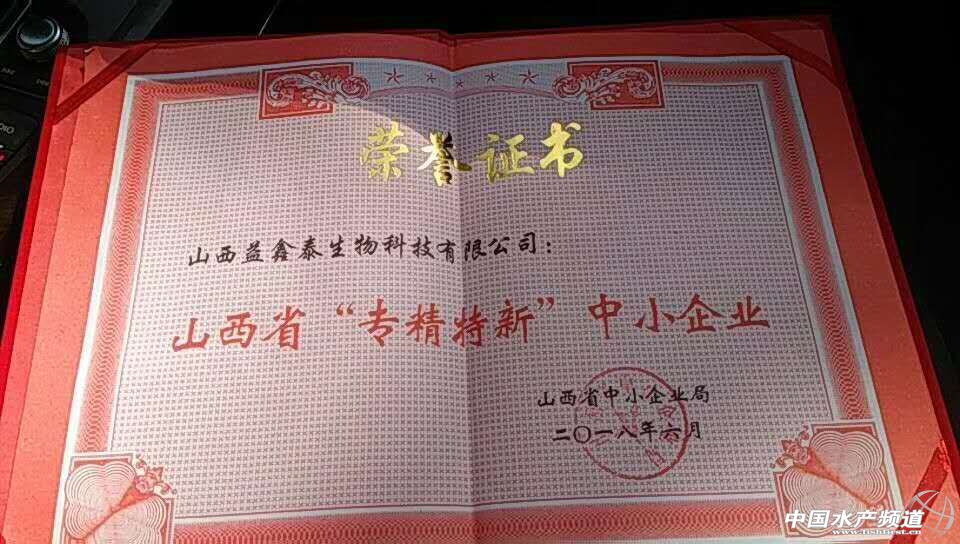 荣誉证书
山西益鑫泰生物科技有限公司：
山西省“专精特新”中小企业
山西省中小企业局
二〇一八年六月
中国水产频道
www.fishfirst.cn